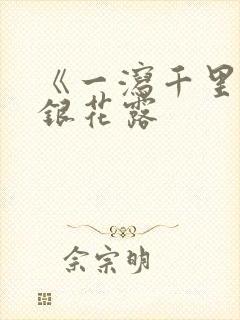 《一瀉千里
銀花露
佘宗明